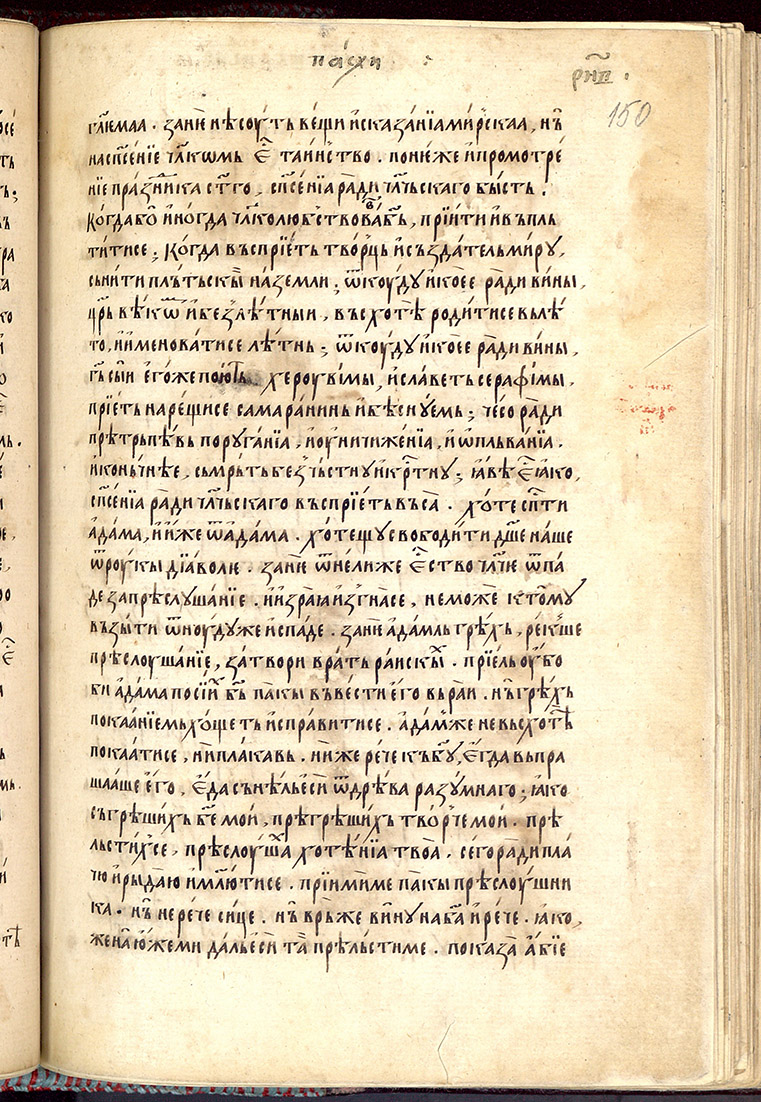 па́схи
рн҃п ·
150
гл҃емаа · зан̑е нѣсоу́ть ве́щи и҆сказа́нїа ми́рскаа, нь̑
наспⷭ҇енїе чл҃кѡмь є҆ⷭ҇ таи́нство · поне́же и҆промотре́
нїе пра́зⷣника ст҃го · спⷭ҇енїа ра́ди чл҃чьскаго бы́сть ·
Когда̀бо и҆ногда̀ чл҃колю́бⷭ҇твова бь҃, прїи́ти и҆въпль
ти́тисе ; когда̀ въспрїе́ть тво́рⷰ҇ь и҆създа́тель ми́ру,
сьни́ти пль́тьскы наземли ; ѿкоу́ду и҆ко́ее ра́ди вины̀,
цр҃ь вѣ́кѡⷨ и҆безлѣ́тныи, въсхотѣ̀ роди́тисе вьлѣ́
то, и҆и҆менова́тисе лѣ́тнь ; ѿкоу́ду и҆ко́ее ра́ди вины̀,
гь҃ сы́и е҆го́же пою́ть херꙋви́мы, и҆сла́веть серафі́мы,
прїе́ть наре́щисе самара́нинь и҆бѣ́снꙋемь ; че́со ра́ди
прѣтрьпѣ́вь порꙋга́нїа, и҆оу҆ничиже́нїа, и҆ѡ҆плъва́нїа ·
и҆коньчнѣ́е, сьмрь́ть безⸯчьстнꙋ и҆крⷭ҇тнꙋ ; ꙗ҆вѣ̀ є҆ⷭ҇ ꙗ҆ко,
спⷭ҇енїа ра́ди чл҃чьскаго въспрїе́ть въса̀ · хо́те спⷭ҇ти
а҆да́ма, и҆и́же ѿа҆да́ма · хо́тещꙋ свободи́ти дш҃е на́ше
ѿроу́кы дїа́волю · зан̑е ѿне́лиже є҆ⷭ҇ство чл҃чⷭ҇е ѿпа́
де запрѣслꙋша́нїе · и҆и҆зра́ꙗ и҆згна́се, неможе́ ктомꙋ̀
възы́ти ѿноу́дꙋже и҆спа́де · зан̑е а҆да́мль грѣ́хь, ре́кше
прѣслоуша́нїе, за́твори вра́ть ра́искы · прїе́ль оу҆́бо
би а҆да́ма поси́хⸯ бь҃ па́кы въве́сти е҆го̀ врьаи · нь̀ грѣ́хь
покаа́нїемь хо́щеть и҆спра́витисе · а҆да́мⸯже невьсхотѣ̀
покаа́тисе, нипла́кавь · ни́же ре́че къбг҃ꙋ, є҆гда̀ вьпра
ша́аше є҆го̀, є҆да̀ сънѣ́ль є҆сѝ ѿдрѣ́ва разꙋ́мнаго ; ꙗ҆ко
съгрѣши́хь бж҃е мои, прѣгрѣши́хь твор́че мои · прѣ
льсти́хⸯсе, прѣслоу́ша хотѣ́нїа твоа̀ · сего̀ ра́ди пла́
чю и҆рыда́ю и҆млю́тисе · прїи́ми ме па́кы прѣслоу́шни
ка · нь̀ нере́че си́це · нь̀ врь́же винꙋ̀ наба҃ и҆ре́че · ꙗ҆ко,
жена̀ ю҆́же ми да́ль є҆сѝ та̀ прѣльсти ме · показа̀ а҆́бїе